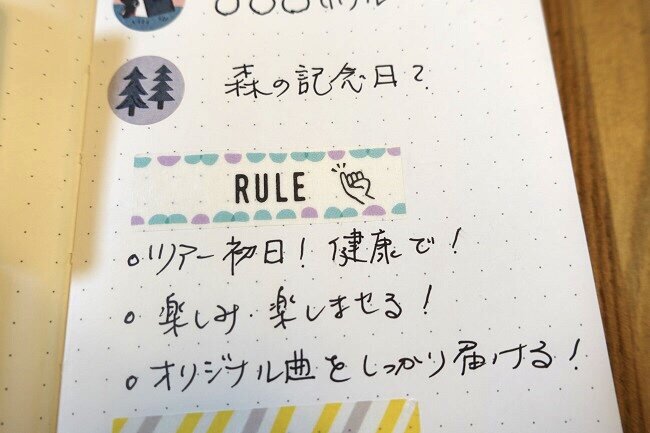 森の記念日で
RULE
○ツアー初日！健康で！
○楽しみ・楽しませる！
○オリジナル曲をしっかり届ける！